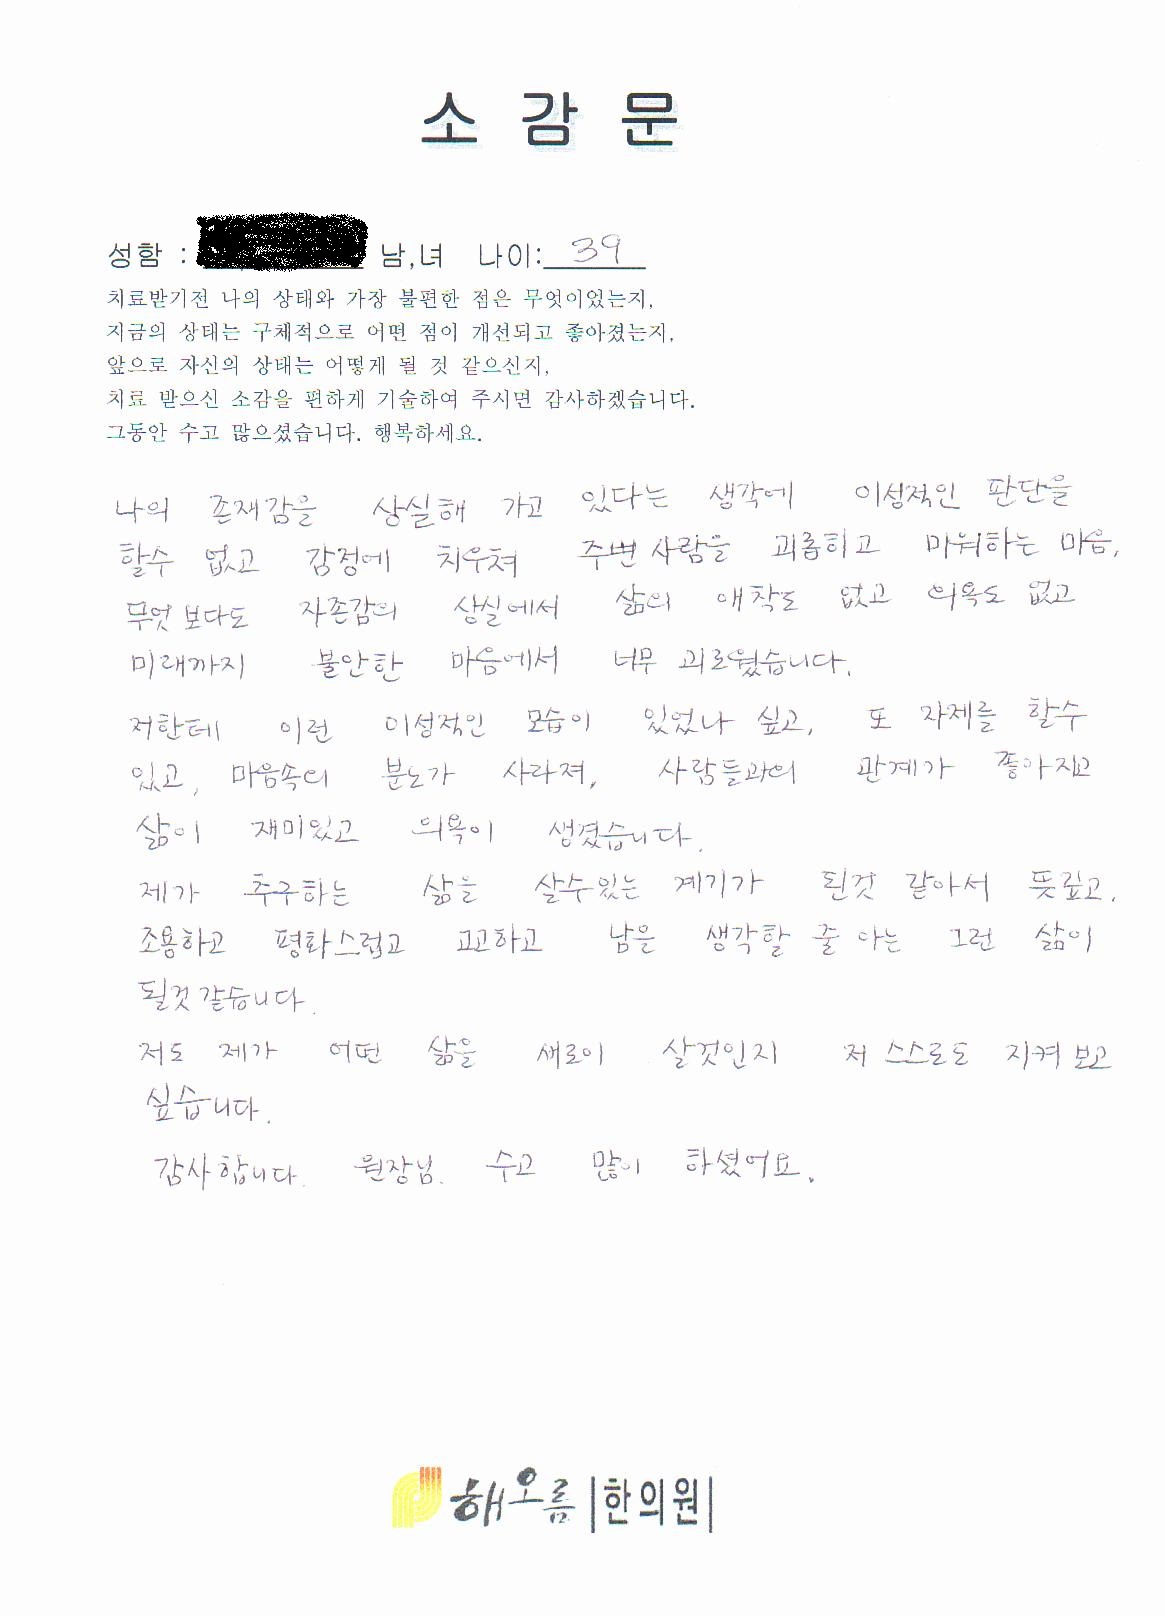 소감문
성함 : 남,녀 나이: 39
치료받기전 나의 상태와 가장 불편한 점은 무엇이었는지,
지금의 상태는 구체적으로 어떤 점이 개선되고 좋아졌는지,
앞으로 자신의 상태는 어떻게 될 것 같으신지,
치료 받으신 소감을 편하게 기술하여 주시면 감사하겠습니다.
그동안 수고 많으셨습니다. 행복하세요.
나의 존재감을 상실해 가고 있다는 생각에 이성적인 판단을
할수 없고 감정에 치우쳐 주변 사람을 괴롭히고 미워하는 마음,
무엇 보다도 자존감의 상실에서 삶의 애착도 없고 의욕도 없고
미래까지 불안한 마음에서 너무 괴로웠습니다.
저한테 이런 이성적인 모습이 있었나 싶고, 또 자제를 할수
있고, 마음속의 분노가 사라져, 사람들과의 관계가 좋아지고
삶이 재미있고 의욕이 생겼습니다.
제가 추구하는 삶을 살수있는 계기가 된것 같아서 뜻깊고,
조용하고 평화스럽고 고고하고 남을 생각할 줄 아는 그런 삶이
될것 같습니다.
저도 제가 어떤 삶을 새로이 살것인지 저 스스로도 지켜 보고
싶습니다.
감사합니다. 원장님. 수고 많이 하셨어요.
해오름 한의원